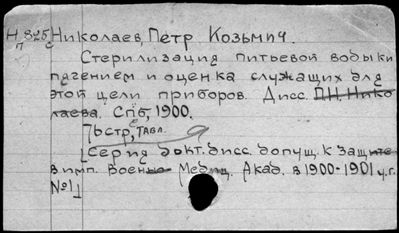 Н 825 Николаев, Петр Козьмич.
п
Стерилизация питьевой воды ки
пячением и оценка служащих для
этой цели приборов. Дисс. П.Н. Нико
лаева. Спб, 1900.
76 стр, табл.
[Серия докт. дисс. допущ. к защите
в имп. Военно Медиц. Акад. в 1900-1901 у.г.
№1]